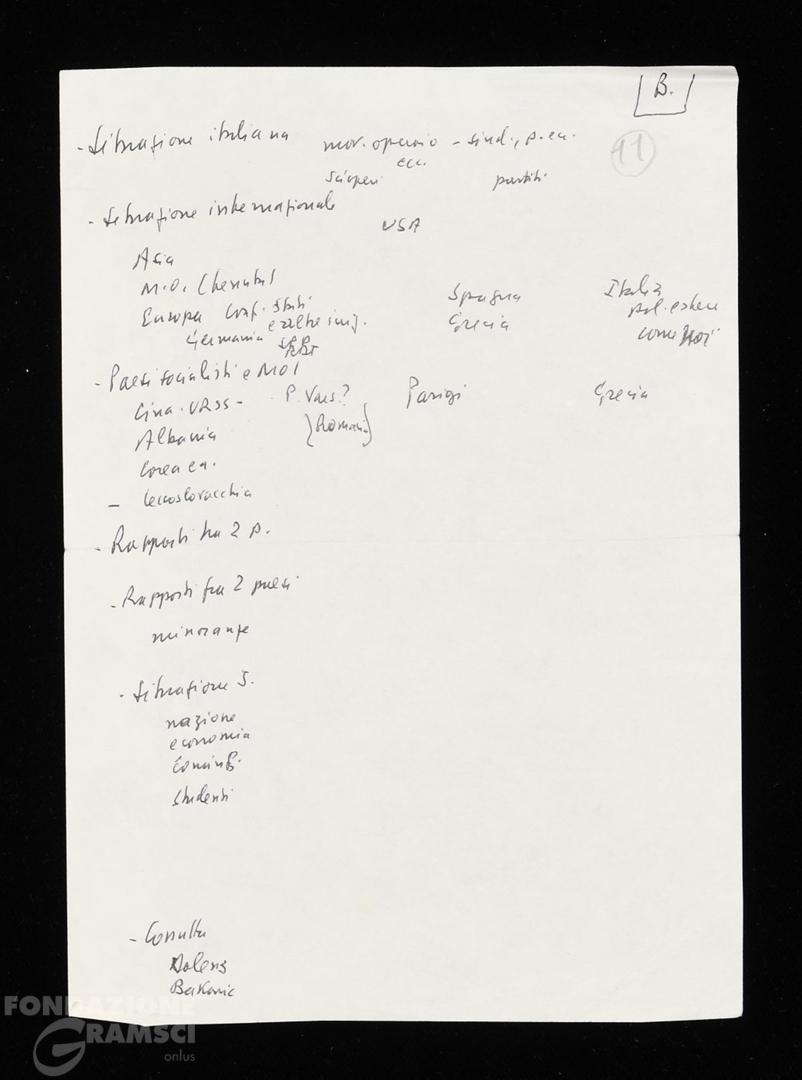 B.
11
- Situazione italiana mov. operaio - sind., p. ecc.
scioperi partiti
- Situazione internazionale
USA
Asia
M.O.
Europa Conf. Stati Spagna Italia
e altre iniz. Grecia pol. estera
Germania come
- Paesi socialisti e MOI
Cina - URSS - P. Vars? Parigi Grecia
Albania (Romania)
Corea ecc.
- Cecoslovacchia
- Rapporti tra 2 p.
- Rapporti fra 2 paesi
minoranze
- Situazione J.
nazione
economia
Cominf.
studenti
- Consulta
Dolens
Bakaric
FONDAZIONE
GRAMSCI
onlus